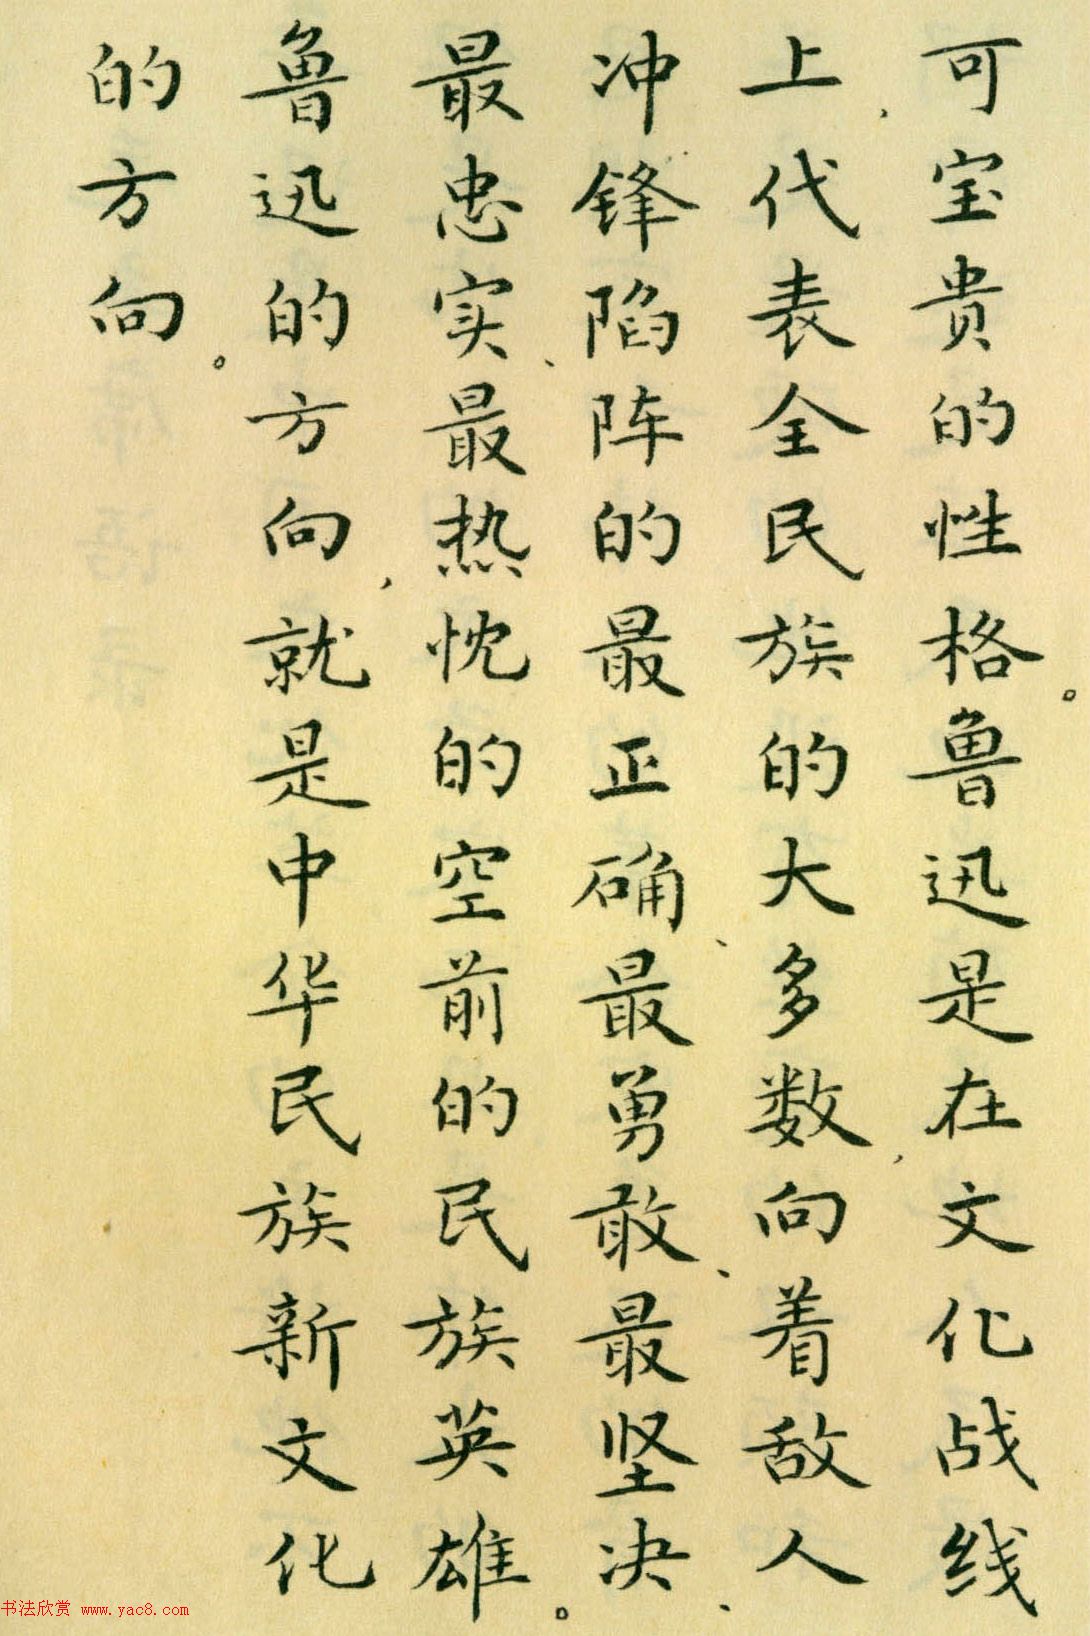 可宝贵的性格。鲁迅是在文化战线
上，代表全民族的大多数，向着敌人
冲锋陷阵的最正确、最勇敢、最坚决、
最忠实、最热忱的空前的民族英雄。
鲁迅的方向，就是中华民族新文化
的方向。
书法欣赏 www.yac8.com